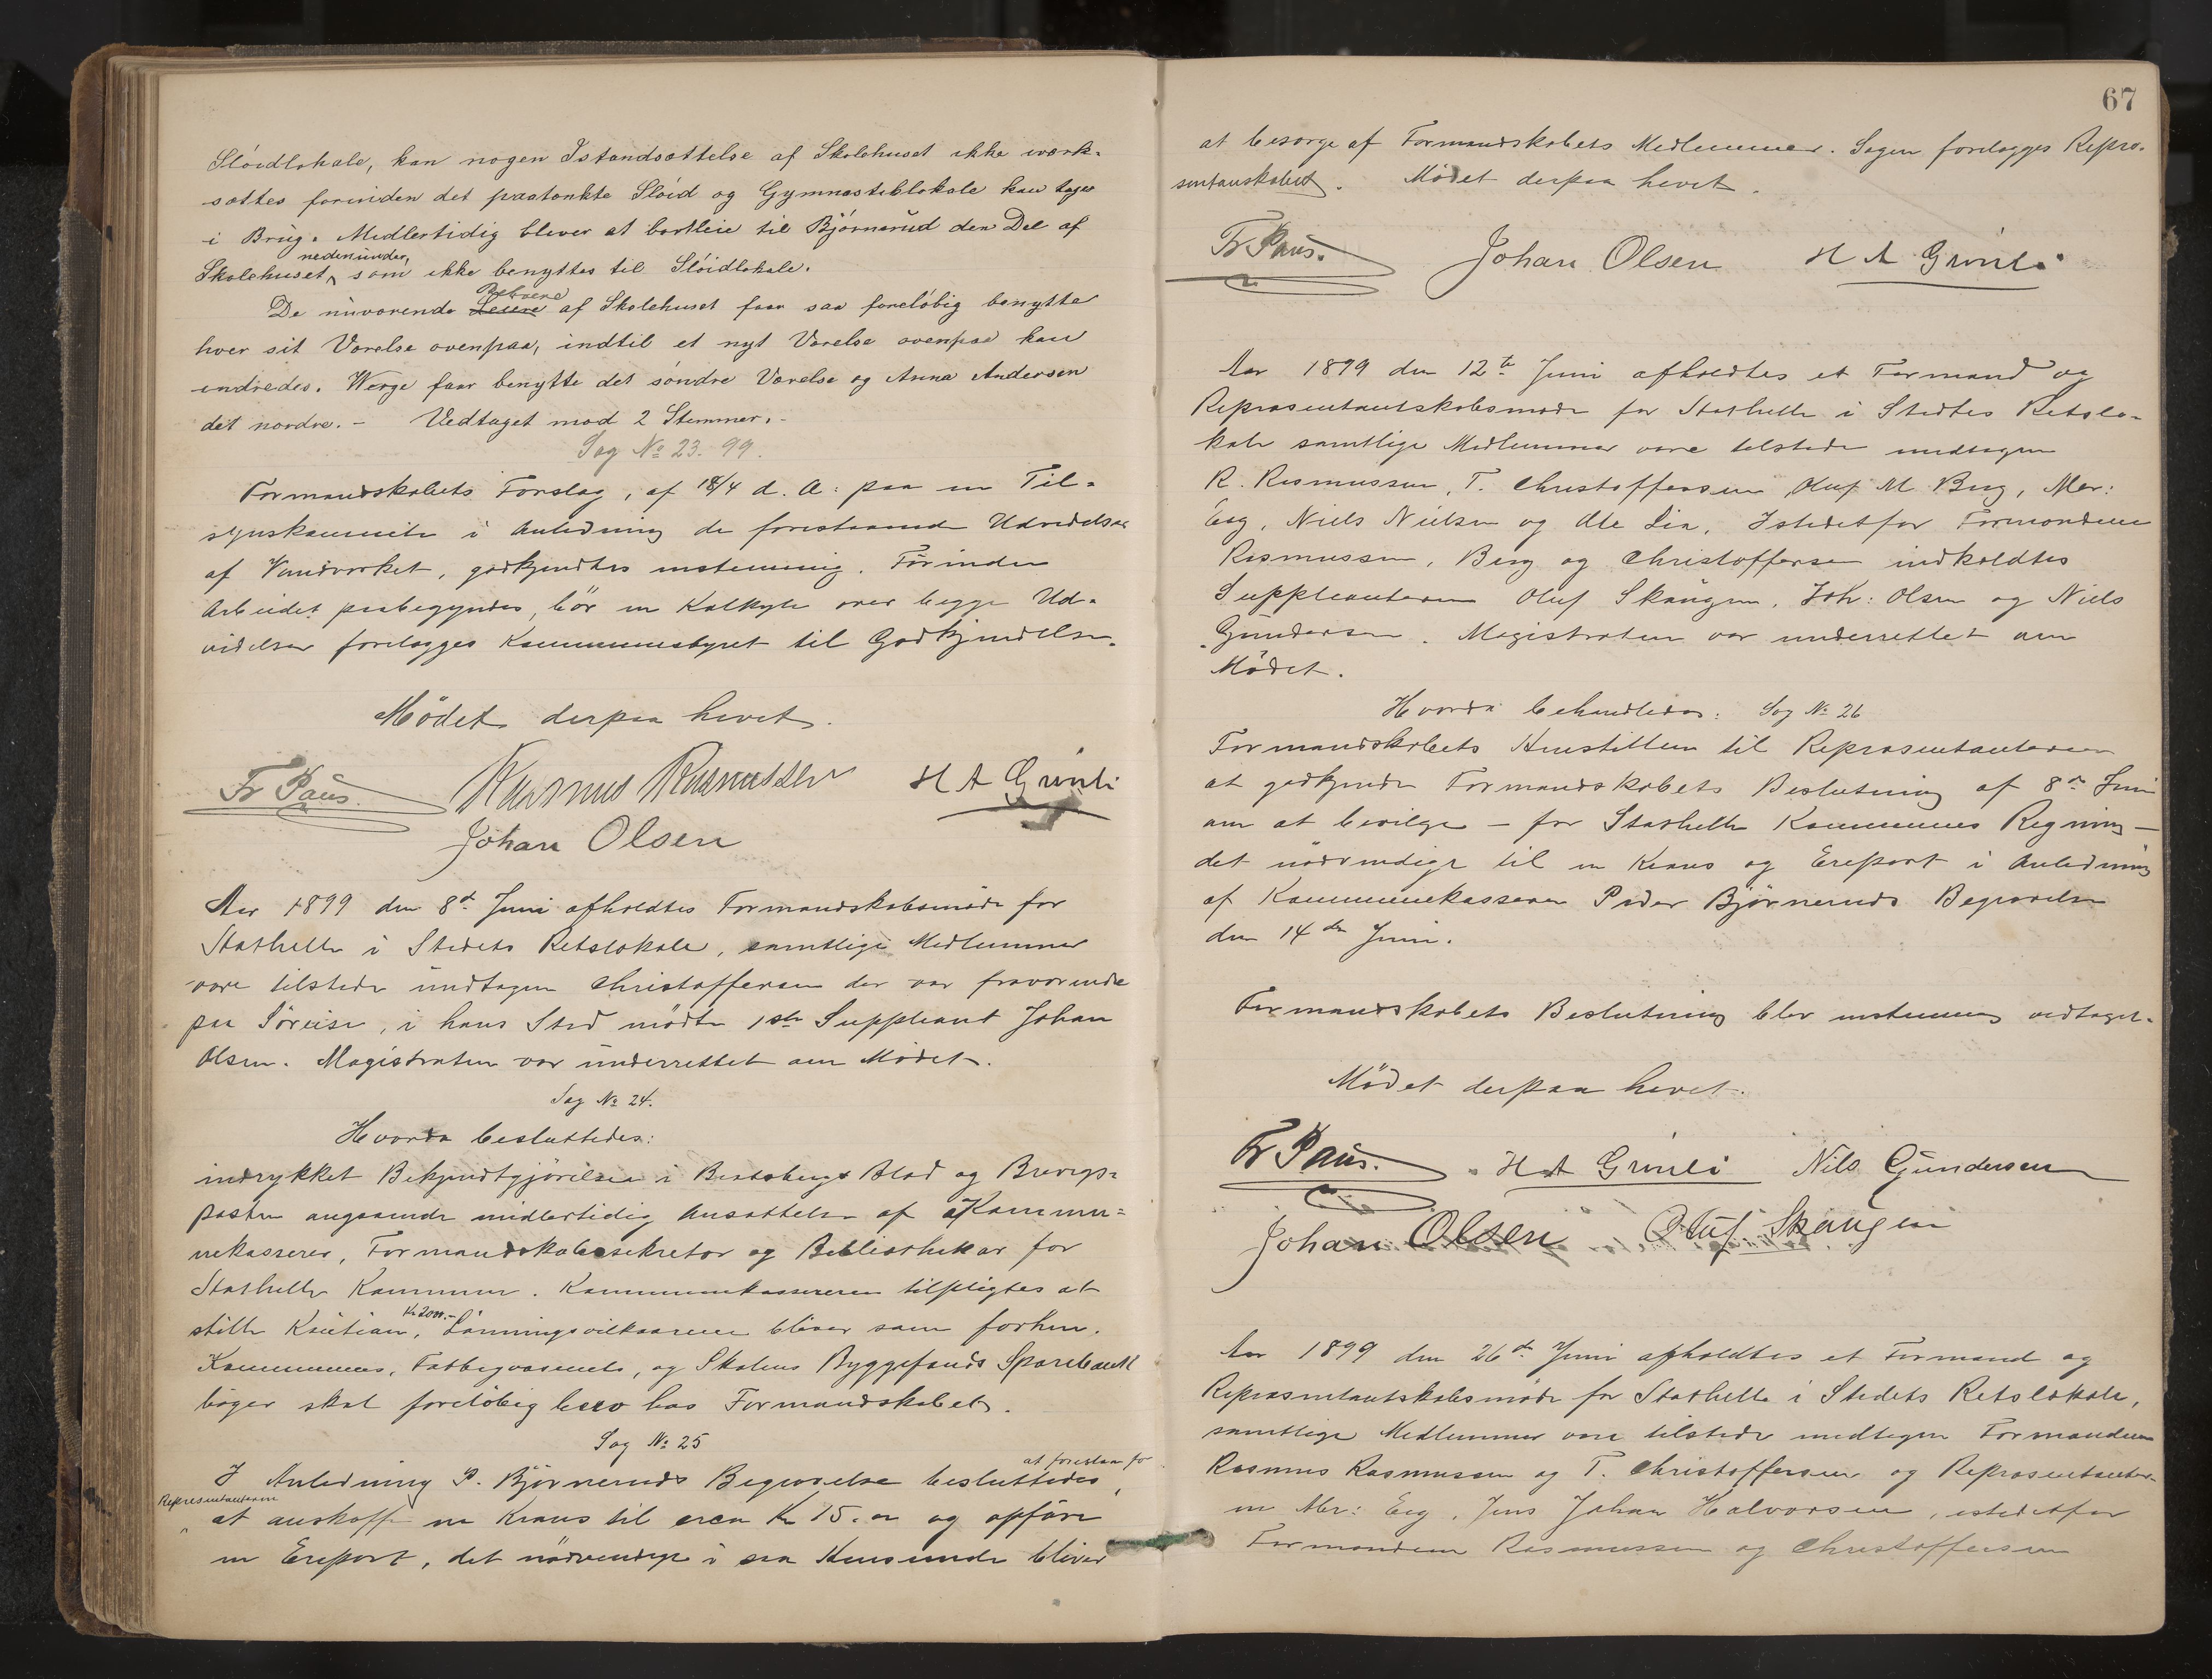 Slöidlokale, kan nogen Istandsættelse af Skolehuset ikke iværk-
sættes forinden det paatænkte Slöid og Gymnastiklokale kan tages
i Brug. Midlertidig bliver at bortleie til Björnerud den Del af
nedenunder,
Skolehuset, som ikke benyttes til Slöidlokale.
Beboere
De nuværende Leiere af Skolehuset faar saa forelöbig benytte
hver sit Værelse ovenpaa, indtil et nyt Værelse ovenpaa kan
indredes. Werge faar benytte det söndre Værelse og Anna Andersen
det nordre. - Vedtaget mod 2 Stemmer. -
Sag No 23-99.
Formandskabets Forslag, af 18/4 d. A: paa en Til-
synskomite i Anledning de forestaaende Udvidelser
af Vandværket, godkjendtes enstemmig. Förinden
Arbeidet paabegyndes, bör en Kalkyle over begge Ud-
videlser forelægges Kommunestyret til Godkjendelse.
Mödet derpaa hevet.
Fr Paus. Rasmus Rasmussen H A Grinli
Johan Olsen
Aar 1899 den 8de Juni afholdtes Formandskabsmöde for
Stathelle i Stedets Retslokale, samtlige Medlemmer
vare tilstede undtagen Christoffersen der var fraværende
paa Söreise, i hans Sted mödte 1ste Suppleant Johan
Olsen. Magistraten var underrettet om Mödet.
Sag No 24.
Hvorda besluttedes:
indrykket Bekjendtgjörelse i Bratsbergs Blad og Brevigs-
posten angaaende midlertidig Ansættelse af Kommu-
nekasserer, Formandskabssekretær og Bibliothekar for
Stathelle Kommune. Kommunekassereren tilpligtes at
Kr 2000.-
stille Kaution, Lönningsvilkaarene bliver som forhen.
Kommunens, Fattigvæsenets, og Skolens Byggefonds Sparebank
böger skal forelöbig bero hos Formandskabet.
Sag No 25
at foreslaa for
I Anledning P. Björneruds Begravelse besluttedes,
Repræsentanterne
at anskaffe en Krans til circa Kr 15.00 og opföre
en Ereport, det nödvendige i saa Henseende bliver
67
at besorge af Formandskabets Medlemmer. Sagen forelægges Repræ-
sentanskabet. Mödet derpaa hevet.
Fr Paus. Johan Olsen H A Grinli
Aar 1899 den 12te Juni afholdtes et Formand og
Repræsentantskabsmöde for Stathelle i Stedets Retslo-
kale samtlige Medlemmer vare tilstede undtagen
R. Rasmussen, T. Christoffersen, Oluf M. Berg, Mar:
Eeg, Niels Nielsen og Ole Lia. Istedetfor Formændene
Rasmussen, Berg og Christoffersen indkaldtes
Suppleanterne Oluf Skaugen, Joh: Olsen og Niels
Gundersen. Magistraten var underrettet om
Mödet.
Hvorda behandledes: Sag No 26
Formandskabets Henstillen til Repræsentanterne
at godkjende Formandskabets Beslutning af 8de Juni
om at bevilge - for Stathelle Kommunes Regning -
det nödvendige til en Krans og Ereport i Anledning
af Kommunekasserer Peder Björneruds Begravelse
den 14de Juni.
Formandskabets Beslutning blev enstemmig vedtaget.
Mödet derpaa hevet.
Fr Paus. H A Grinli Nils Gundersen
Johan Olsen Oluf Skaugen
Aar 1899 den 26de Juni afholdtes et Formand og
Repræsentantskabsmöde for Stathelle i Stedets Retslokale,
samtlige Medlemmer vare tilstede undtagen Formændene
Rasmus Rasmussen og T. Christoffersen og Repræsentanter-
ne Mar: Eeg, Jens Johan Halvorsen, istedetfor
Formændene Rasmussen og Christoffersen